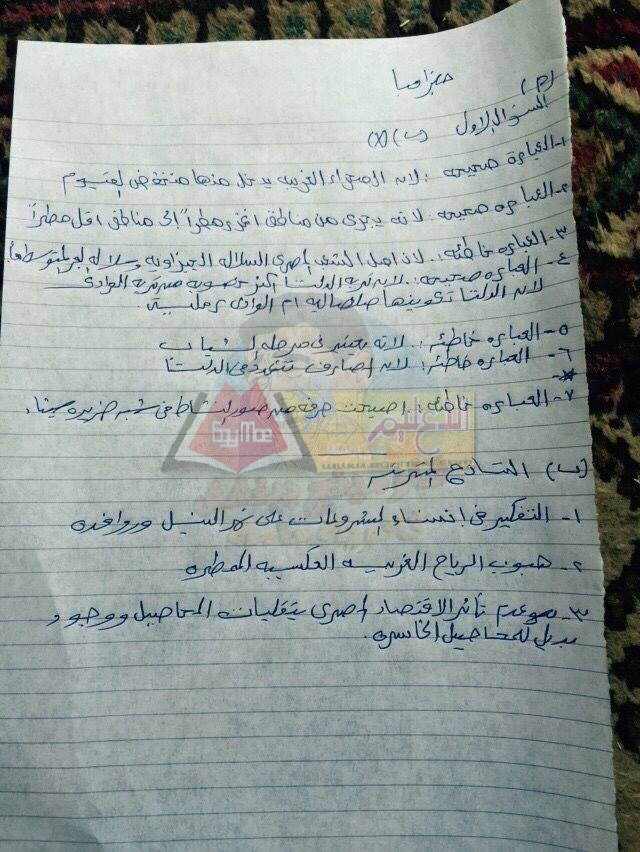 جغرافيا
(م)
السؤال الاول (س) (X)
١- العبارة صحيحه : لانه الصحراء الغربيه يدخل منها منخفض الفيوم
٢- العباره صحيحه لانه يجرى من مناطق اغزر مطراً إلى مناطق اقل مطراً
٣- العباره خاطئه : لان اصل الشعب المصرى السلاله الجيزاويه وسلاله البحر المتوسط
٤- العباره صحيحه : لانه تربه الدلتا اكثر خصوبه من تربه الوادى
لانه الدلتا تكوينها صلصاليه ام الوادى رمليه
٥- العباره خاطئه : لانه يعتبر فى مرحله الشباب
٦- العباره خاطئه : لانه المصارف تتعدد فى الدلتا
٧- العباره خاطئه : اصبحت حرفه من صور النشاط فى شبه جزيره سيناء
(ب) النتائج المترتبه
١- التفكير فى انشاء المشروعات على نهر النيل وروافده
٢- هبوب الرياح الغربيه العكسيه الممطره
٣- عدم تأثر الاقتصاد المصرى بتقلبات المحاصيل ووجود
بديل للمحاصيل الخاسره.